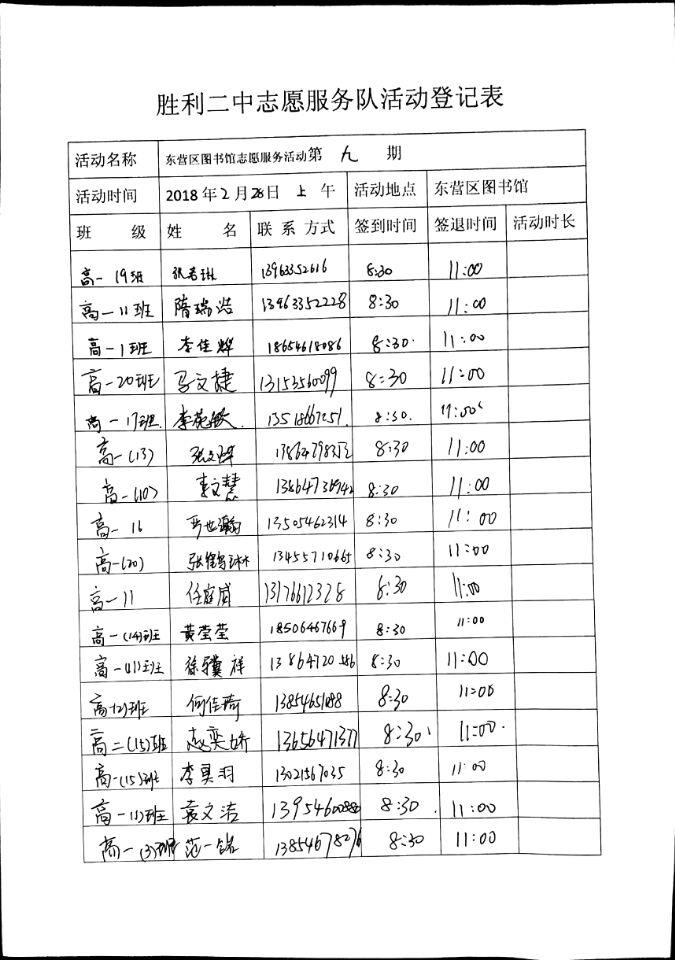 胜利二中志愿服务队活动登记表
活动名称 东营区图书馆志愿服务活动第 九 期
活动时间 2018年2月28日 上 午 活动地点 东营区图书馆
班 级 姓 名 联系方式 签到时间 签退时间 活动时长
高一19班 张若琳 13963352616 8:30 11:00
高一11班 隋瑞浩 13963352228 8:30 11:00
高一1班 李佳烨 18654618086 8:30 11:00
高一20班 马文捷 13153560099 8:30 11:00
高一17班 李苑敏 8:30 11:00
高一(13) 8:30 11:00
高一(10) 李文慧 8:30 11:00
高一 16 13505462314 8:30 11:00
高一(20) 13455710665 8:30 11:00
高一11 任庭威 13176612328 8:30 11:00
高一(14)班 黄莹莹 18506467669 8:30 11:00
高一(11)班 徐骥祥 13864720586 8:30 11:00
高一(2)班 何佳琦 13854651088 8:30 11:00
高二(15)班 赵奕娇 13656471377 8:30 11:00
高一(15)班 李昊羽 13021567035 8:30 11:00
高一(1)班 袁文洁 8:30 11:00
高一(3)班 范一铭 13854678276 8:30 11:00